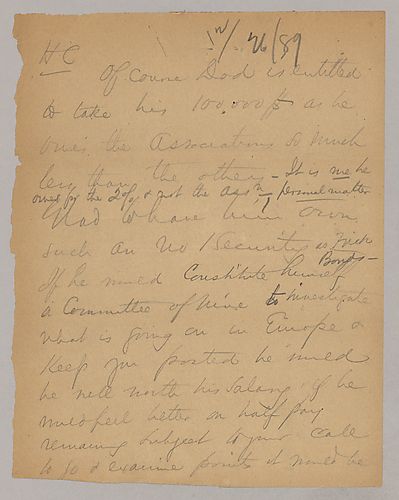 12/26/89
H C
Of course Dod is entitled
to take his 100,000 $ as he
owes the Association so much
less than the others – It is me he
owes for the 2% & not the Assn, personal matter
Glad to have him own
such an No 1 Security as Frick
Bonds –
If he would Constitute himself
a Committee of Nine to investigate
what is going on in Europe &
Keep you posted he would
be well worth his Salary. If he
would feel better on half pay
remaining subject to your call
to go & examine points it would be